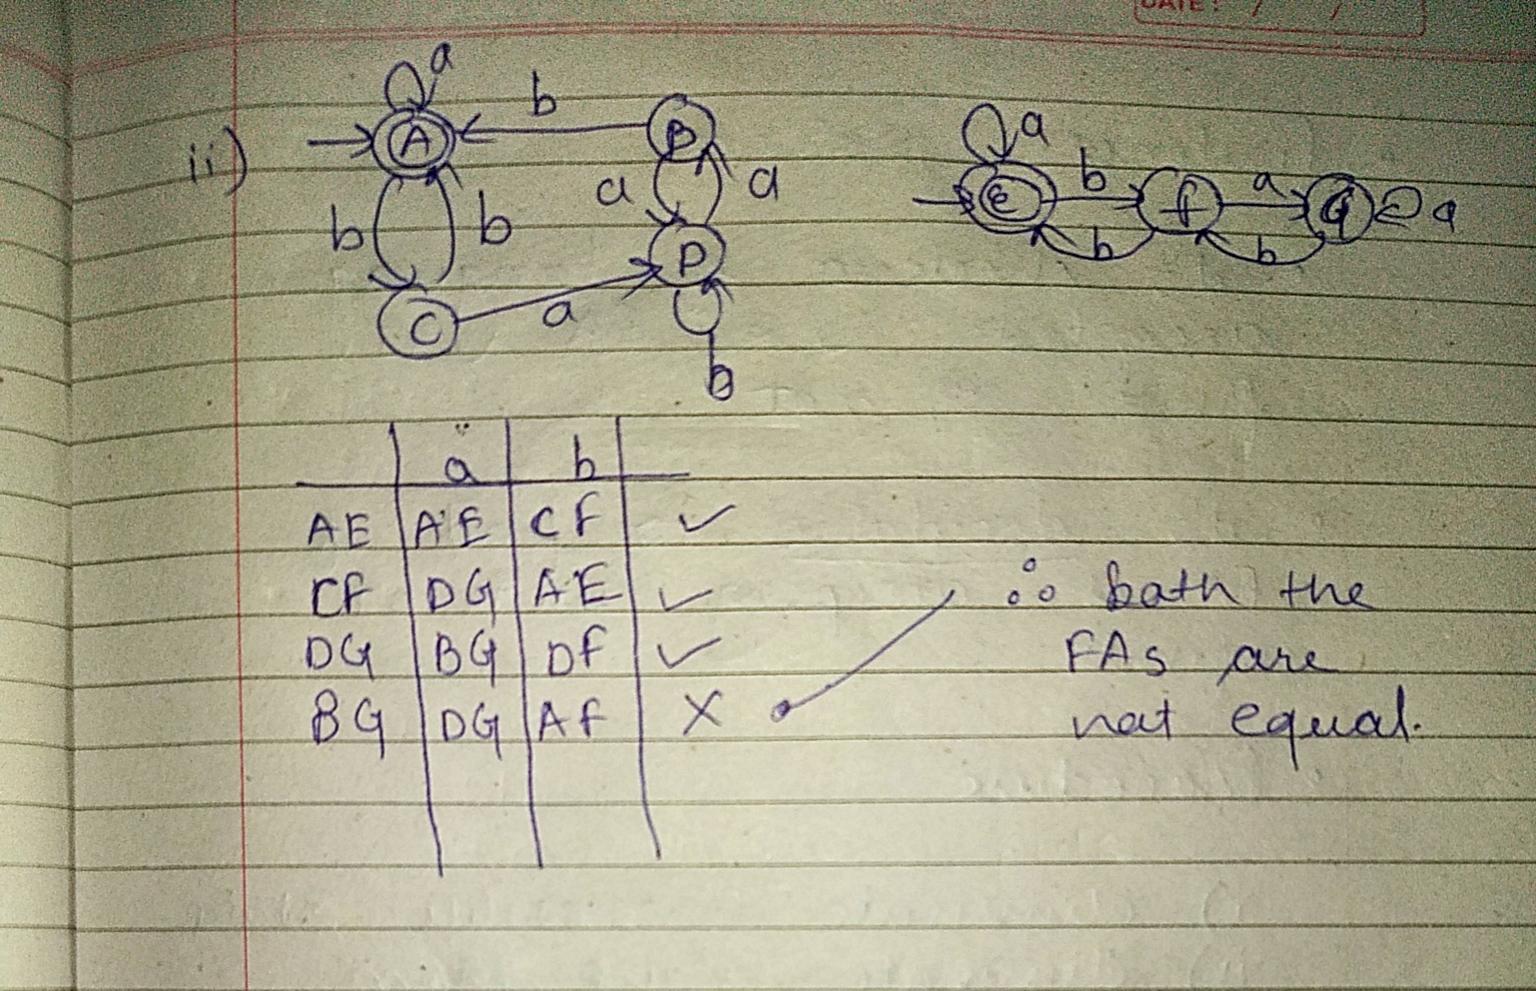 DATE: / /
ii)
a
A
b
B
b
b
a
a
C
a
D
b
a
E
b
f
a
G
a
b
b
a b
AE AE CF ✓
CF DG AE ✓
DG BG DF ✓
BG DG AF X
∴ both the
FAs are
not equal.